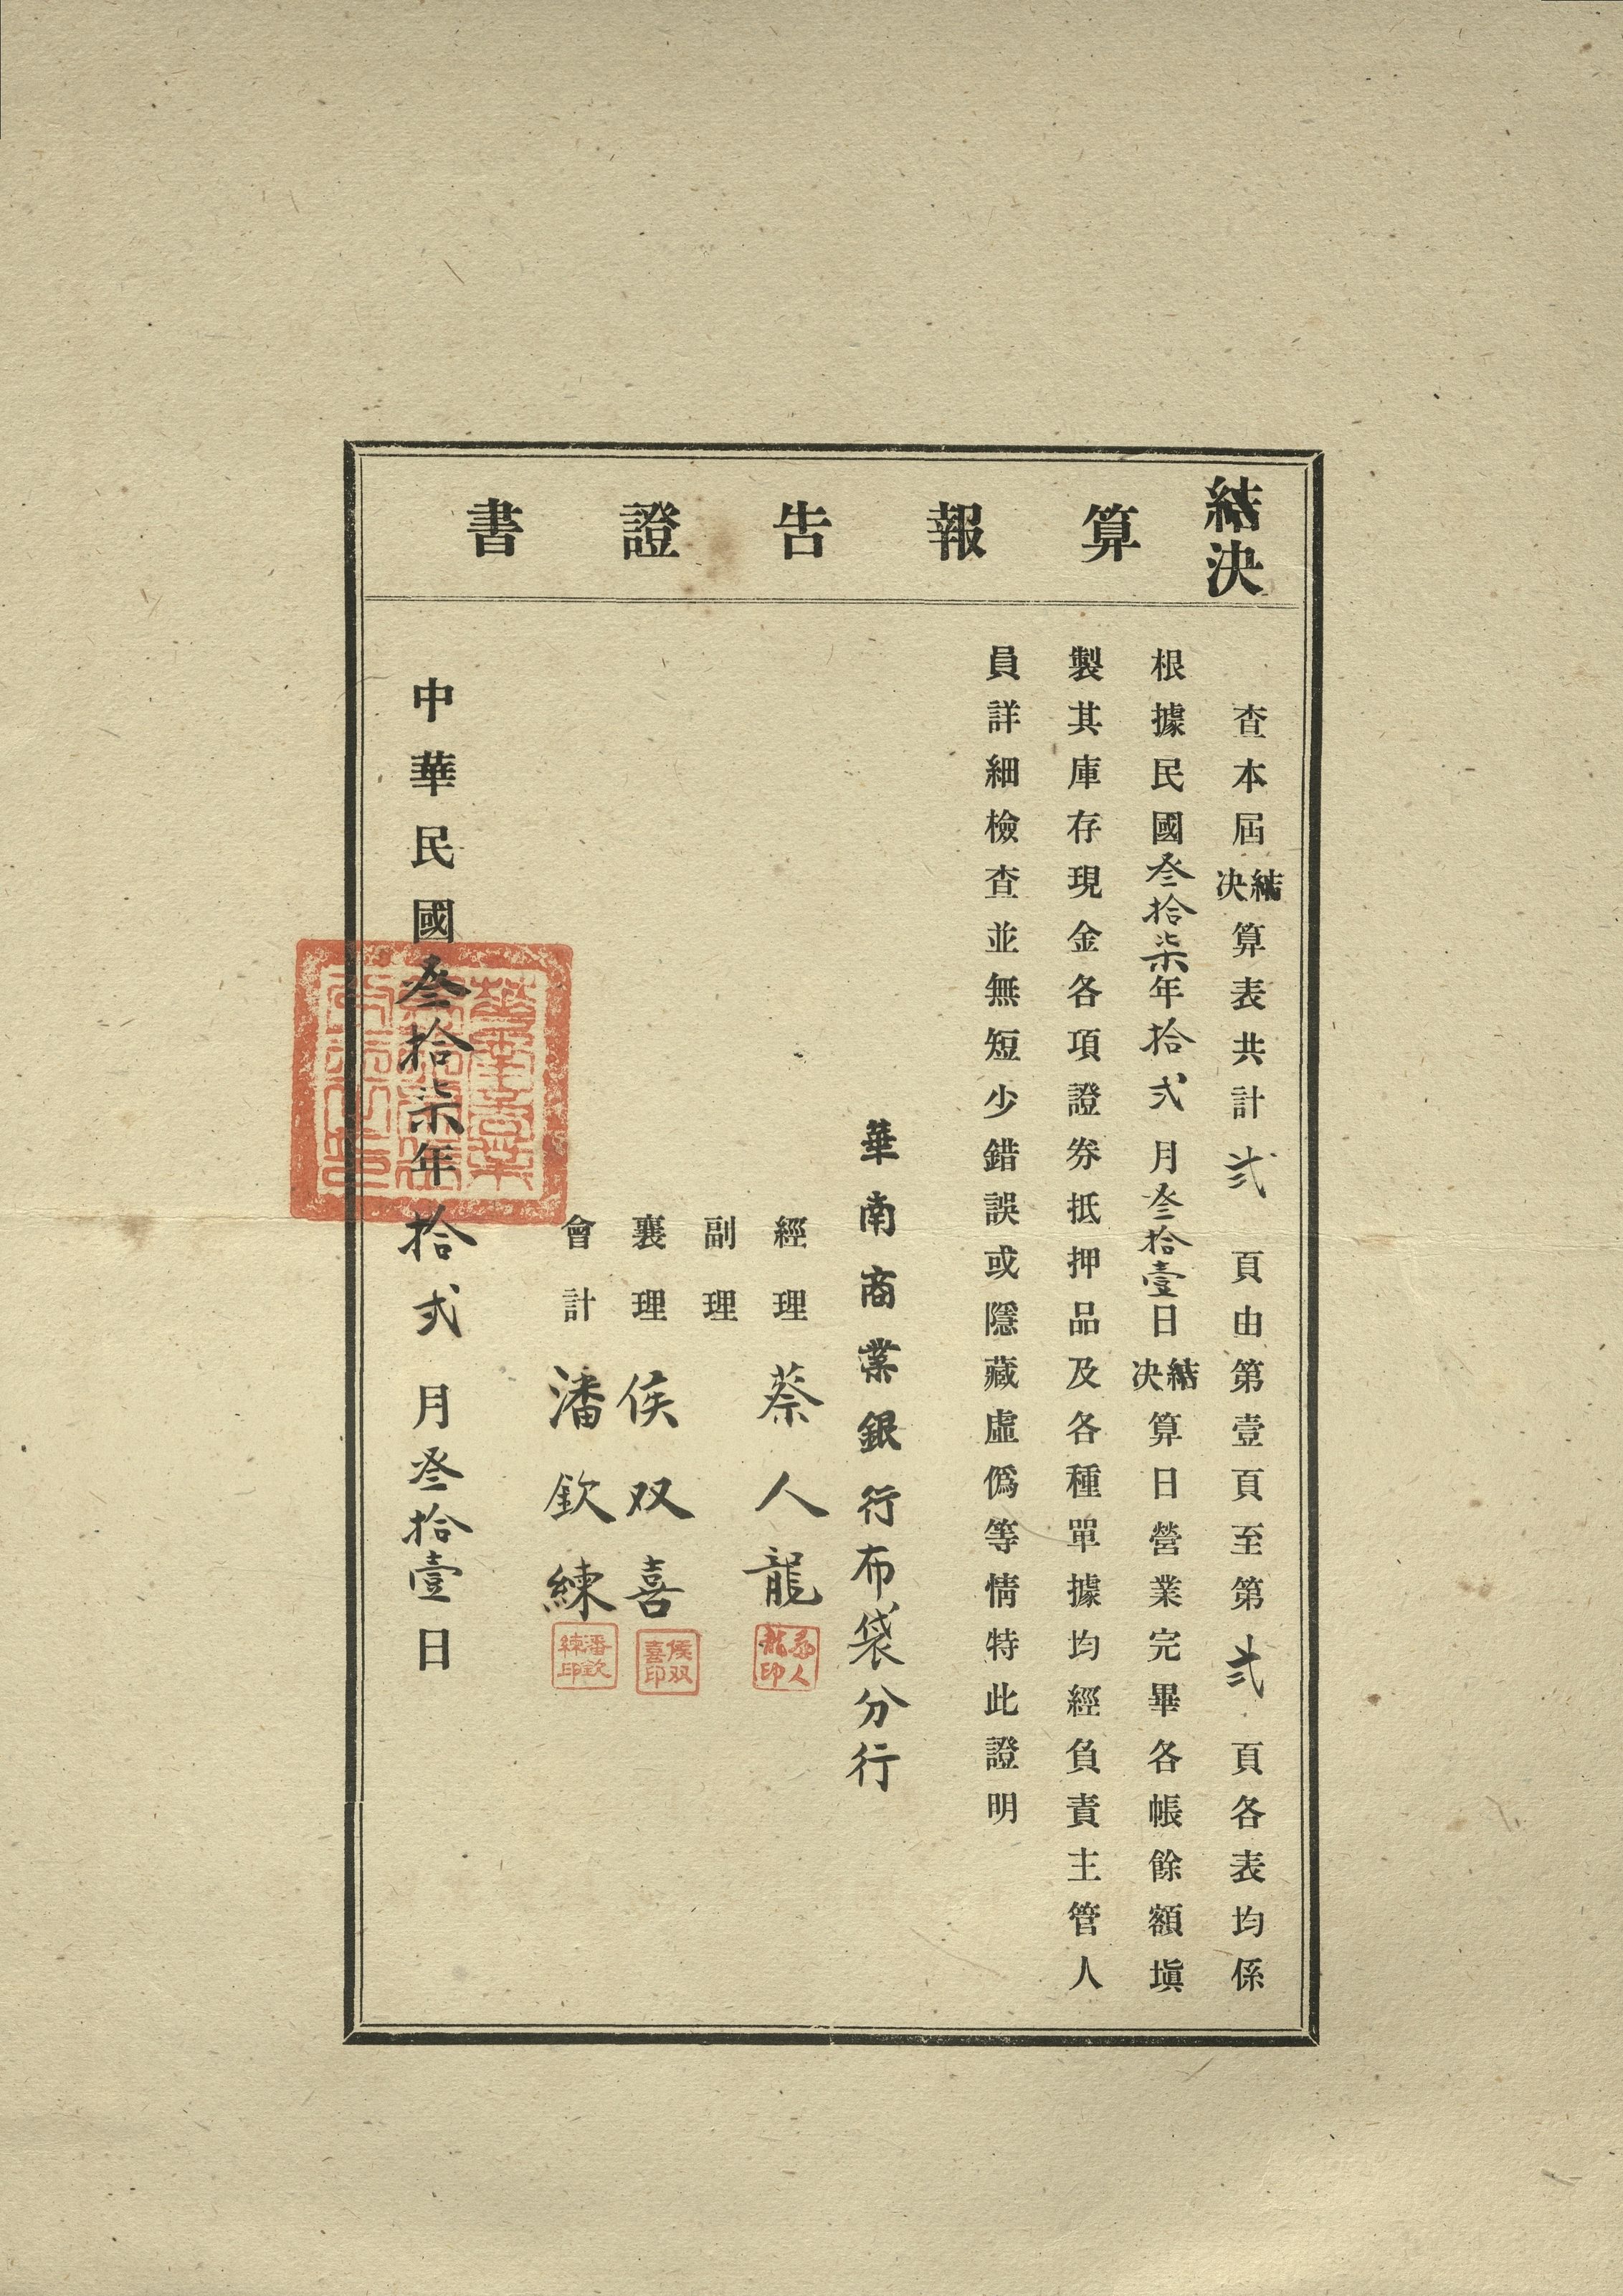 結決算報告證書
查本屆結決算表共計弍頁由第壹頁至第弍頁各表均係
根據民國叁拾柒年拾弍月叁拾壹日結決算日營業完畢各帳餘額塡
製其庫存現金各項證券抵押品及各種單據均經負責主管人
員詳細檢查並無短少錯誤或隱藏虛僞等情特此證明
華南商業銀行布袋分行
經理 蔡人龍 蔡人龍印
副理
襄理 侯双喜 侯双喜印
會計 潘欽練 潘欽練印
中華民國叁拾柒年拾弍月叁拾壹日